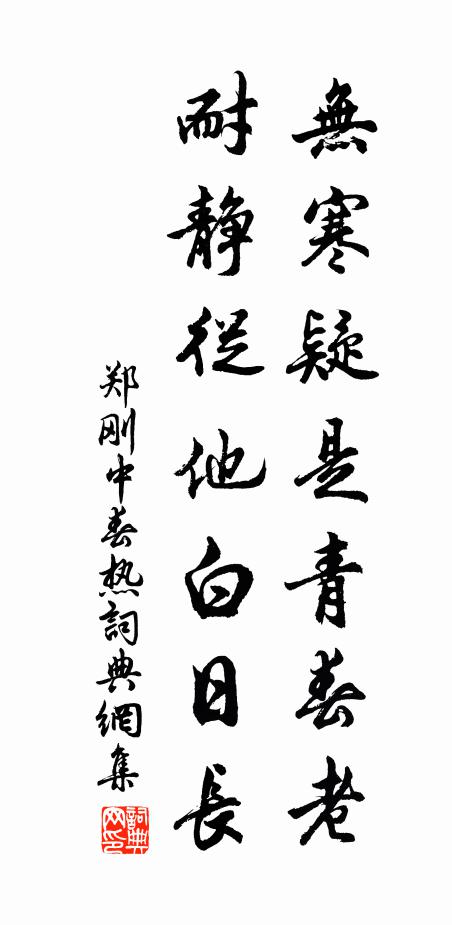 無寒疑是青春老
耐靜從他白日長
郑刚中春热詞典網集
詞典網印